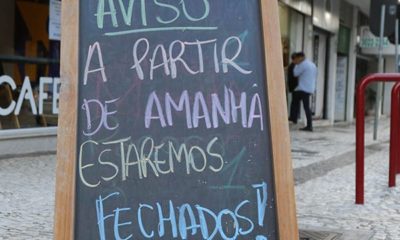 AVISO
A PARTIR
DE AMANHÃ
ESTAREMOS
FECHADOS!
CAFE